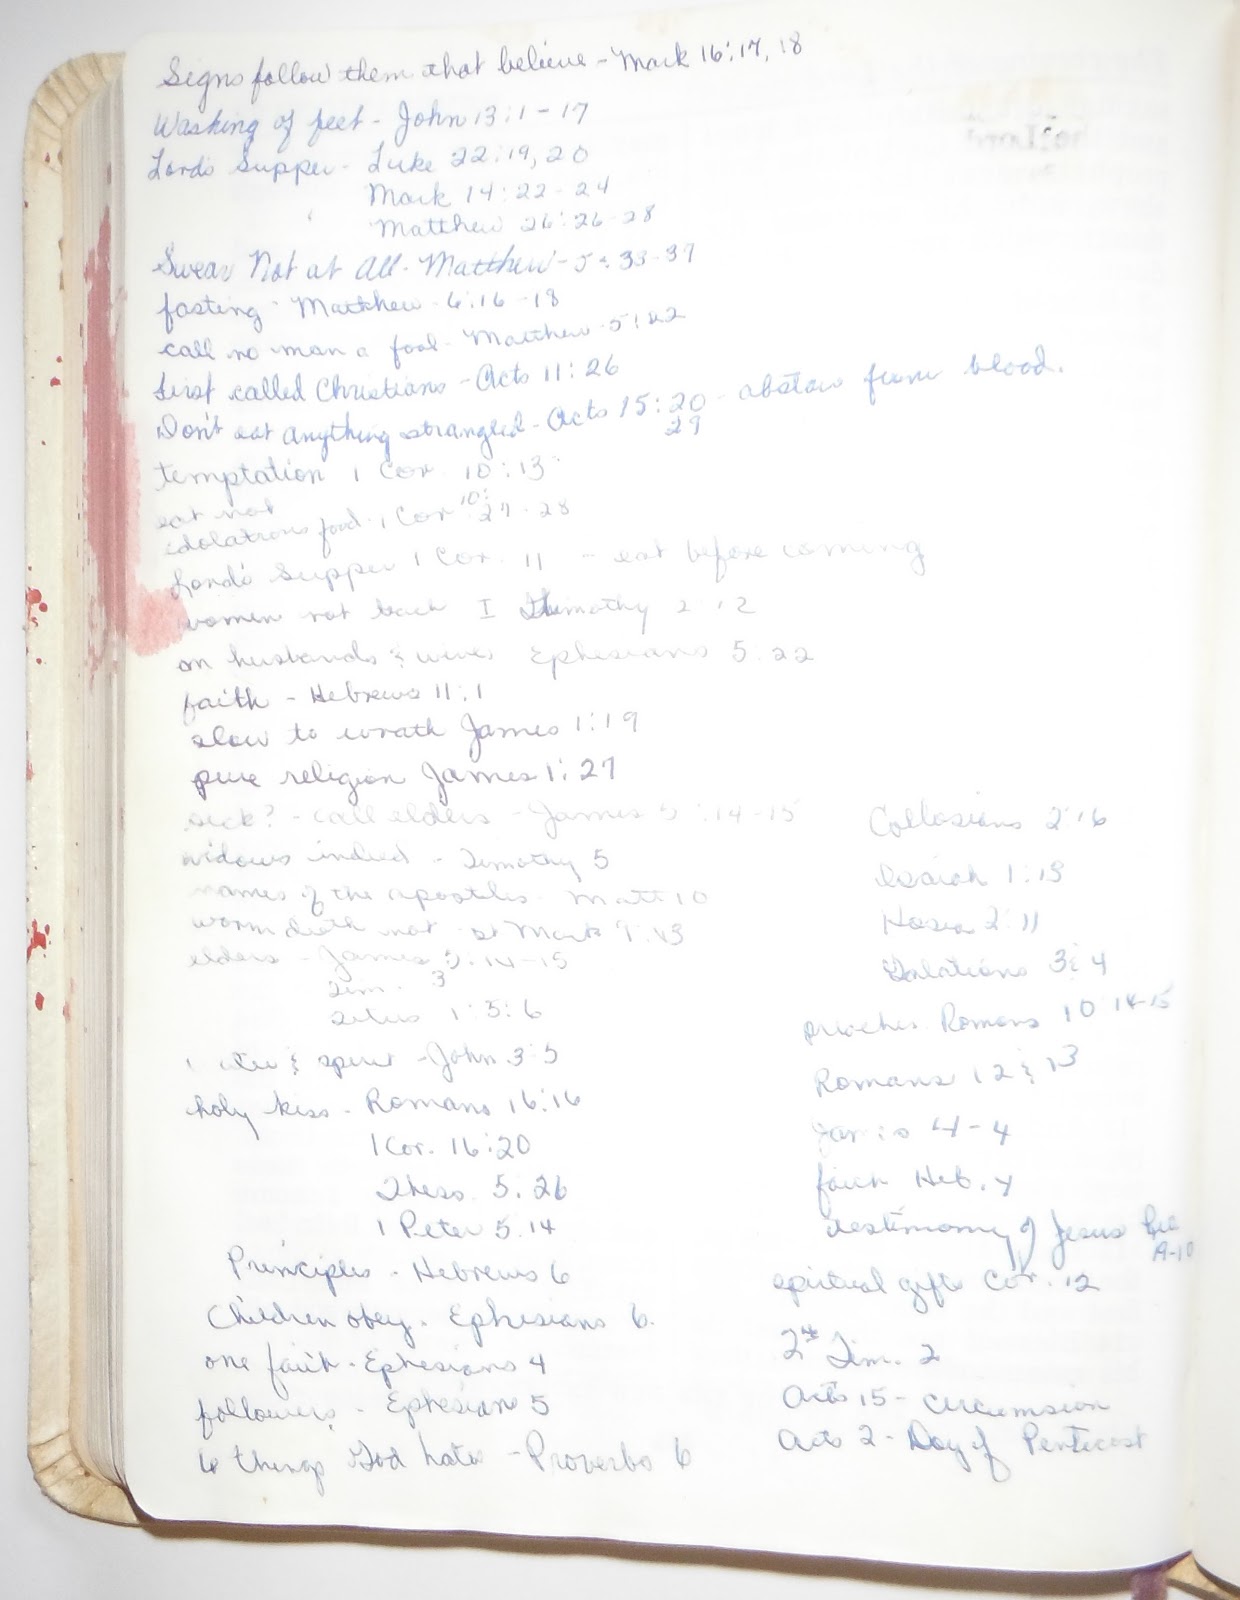 Signs follow them that believe - Mark 16:17, 18
Washing of feet - John 13:1-17
Lord's Supper - Luke 22:19, 20
Mark 14:22-24
Matthew 26:26-28
Swear Not at All - Matthew - 5:33-37
fasting - Matthew - 6:16-18
call no man a fool - Matthew - 5:22
first called Christians - Acts 11:26
Don't eat anything strangled - Acts 15:20 - abstain from blood.
29
temptation 1 Cor. 10:13
eat not
idolatrous food - 1 Cor 10:27-28
Lord's Supper 1 Cor. 11 - eat before coming
women not teach I Timothy 2:12
on husbands & wives Ephesians 5:22
faith - Hebrews 11:1
slow to wrath James 1:19
pure religion James 1:27
sick? - call elders - James 5:14-15
widows indeed - Timothy 5
names of the apostles - Matt 10
worm dieth not - Mark 9:43
elders - James 5:14-15
Tim. 3
Titus 1:5:6
& spirit - John 3:5
holy kiss - Romans 16:16
1 Cor. 16:20
Thess. 5:26
1 Peter 5:14
Principles - Hebrews 6
Children obey - Ephesians 6.
one faith - Ephesians 4
followers - Ephesians 5
6 things God hates - Proverbs 6
Collosians 2:16
Isaiah 1:13
Hosea 2:11
Galations 3 & 4
preacher Romans 10 14-15
Romans 12 & 13
James 4-4
faith Heb. 4
testimony of Jesus
19-10
spiritual gifts Cor. 12
2nd Tim. 2
Acts 15 - circumsion
Acts 2 - Day of Penticost